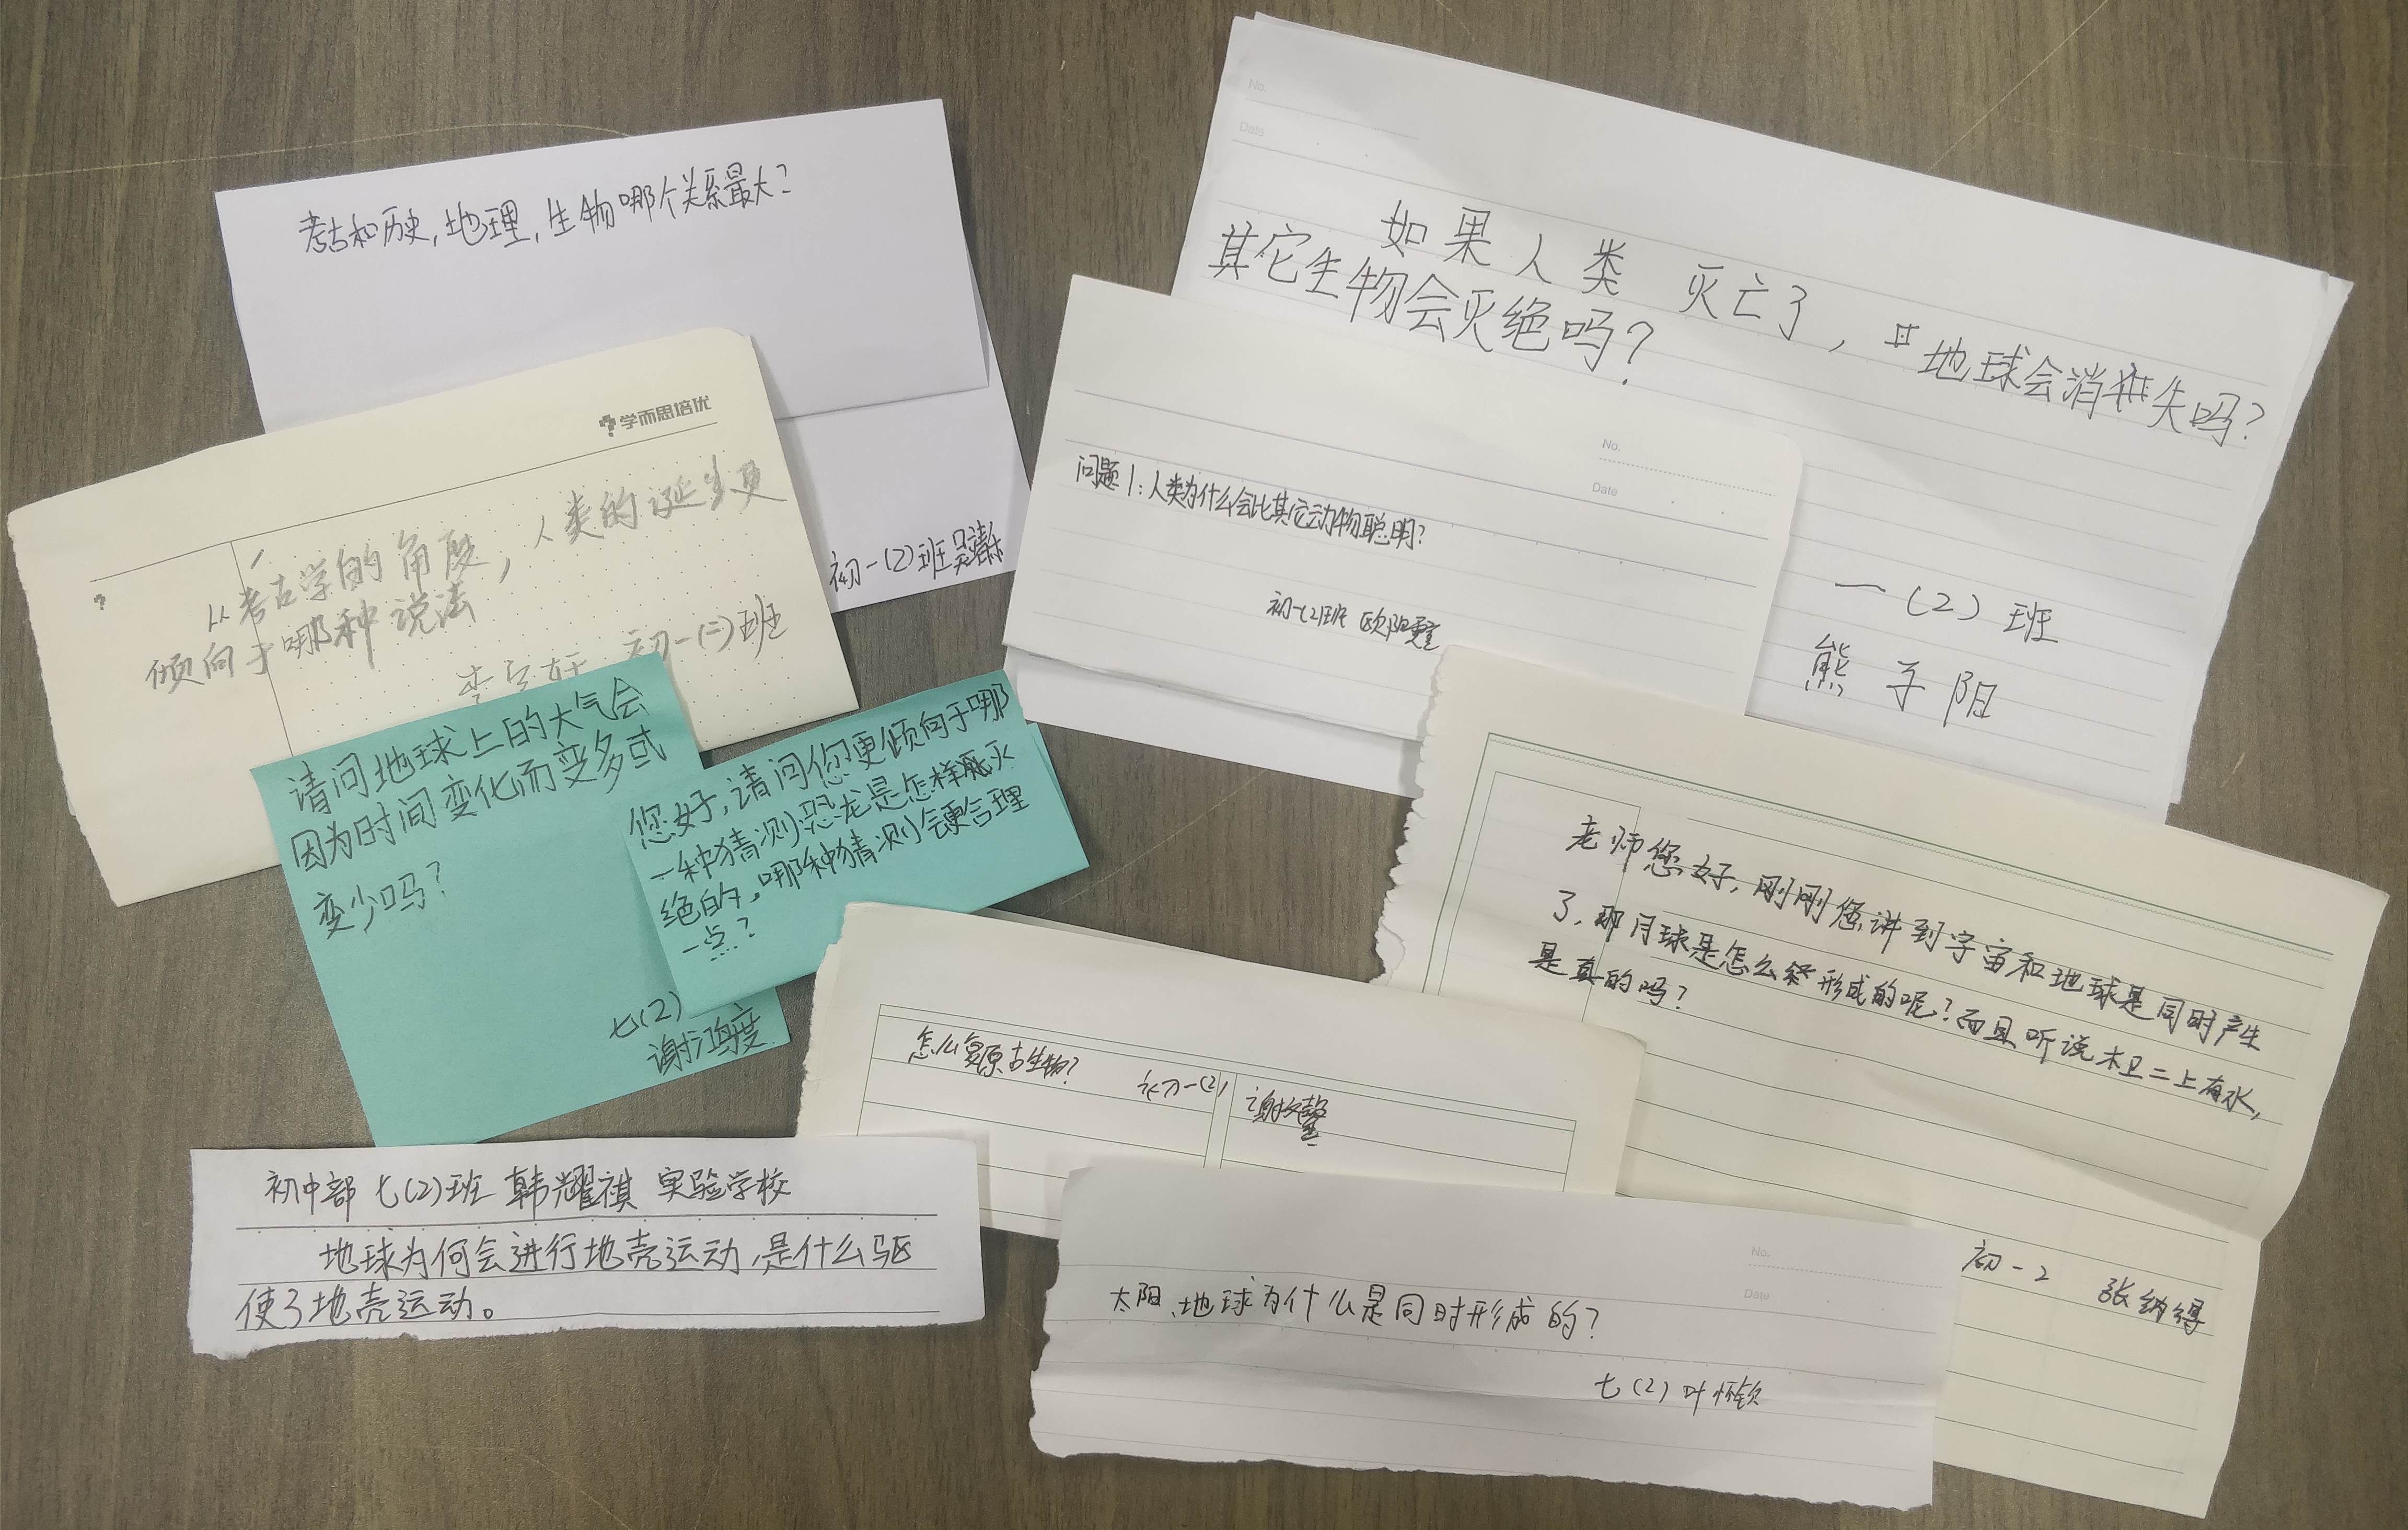 考古和历史,地理,生物哪个关系最大?
初一(2)班吴
学而思培优
从考古学的角度,人类的诞生更
倾向于哪种说法
初一(二)班
请问地球上的大气会
因为时间变化而变多或
变少吗?
您好,请问您更倾向于哪
一种猜测恐龙是怎样灭
绝的,哪种猜测会更合理
一点?
七(2)
谢鸿度
No.
Date
如果人类 灭亡了,地球会消失吗?
其它生物会灭绝吗?
一(2)班
熊子阳
No.
Date
问题1:人类为什么会比其它动物聪明?
初一(2)班 欧阳
老师您好,刚刚您讲到宇宙和地球是同时产生
了,那月球是怎么形成的呢?而且听说木卫二上有水,
是真的吗?
初一2 张纳得
怎么复原古生物? 初一(2) 谢馨
初中部 七(2)班 韩耀祺 实验学校
地球为何会进行地壳运动,是什么驱
使了地壳运动。
No.
Date
太阳、地球为什么是同时形成的?
七(2)叶怀钦